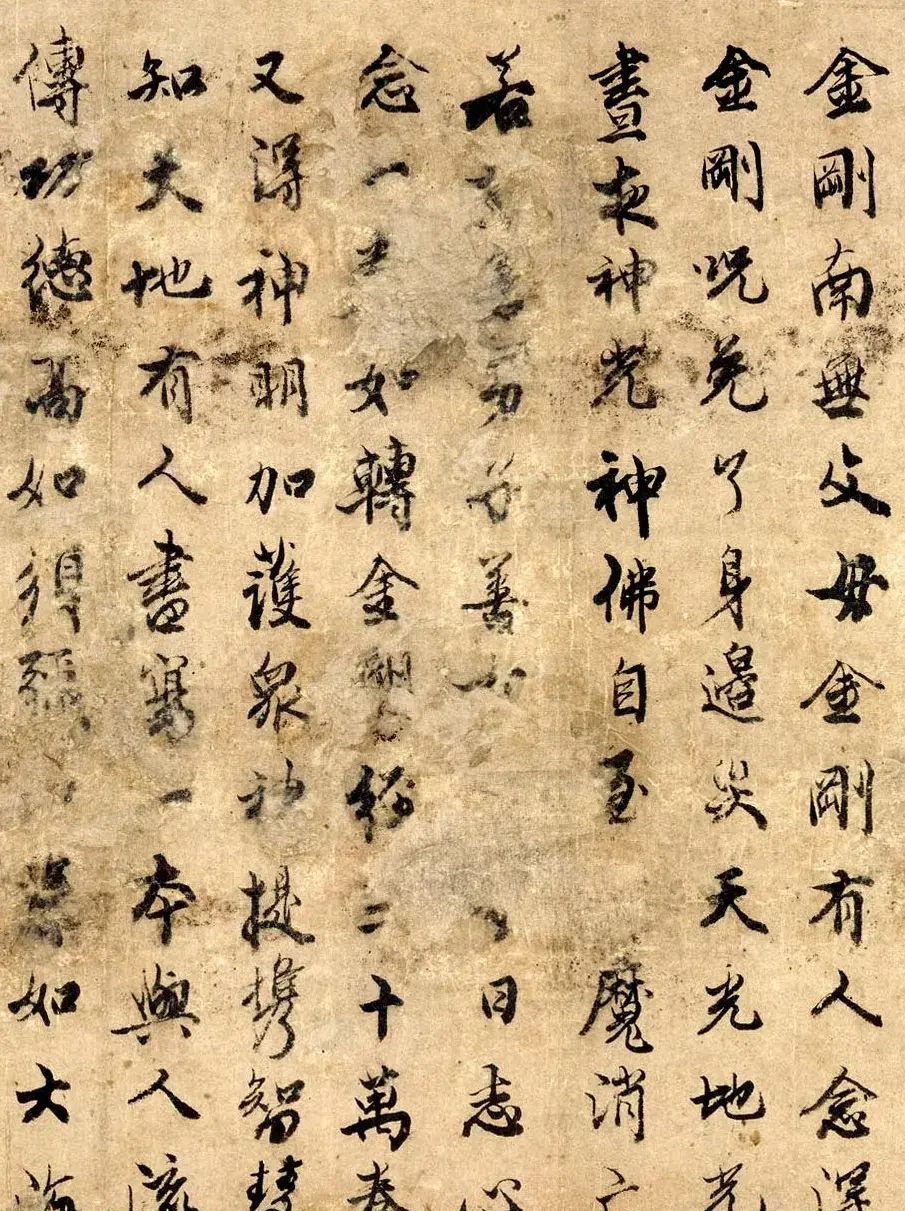 金剛南無父母金剛有人念得
金剛呪免了身邊災天光地光
晝夜神光神佛自至魔消亡
若男子善日志心
念一如轉金剛經二十萬卷
又得神明加護眾神提攜智慧
知大地有人書寫一本與人流
傳功德高如須彌如大海